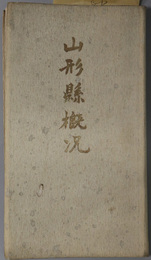 山形縣概況